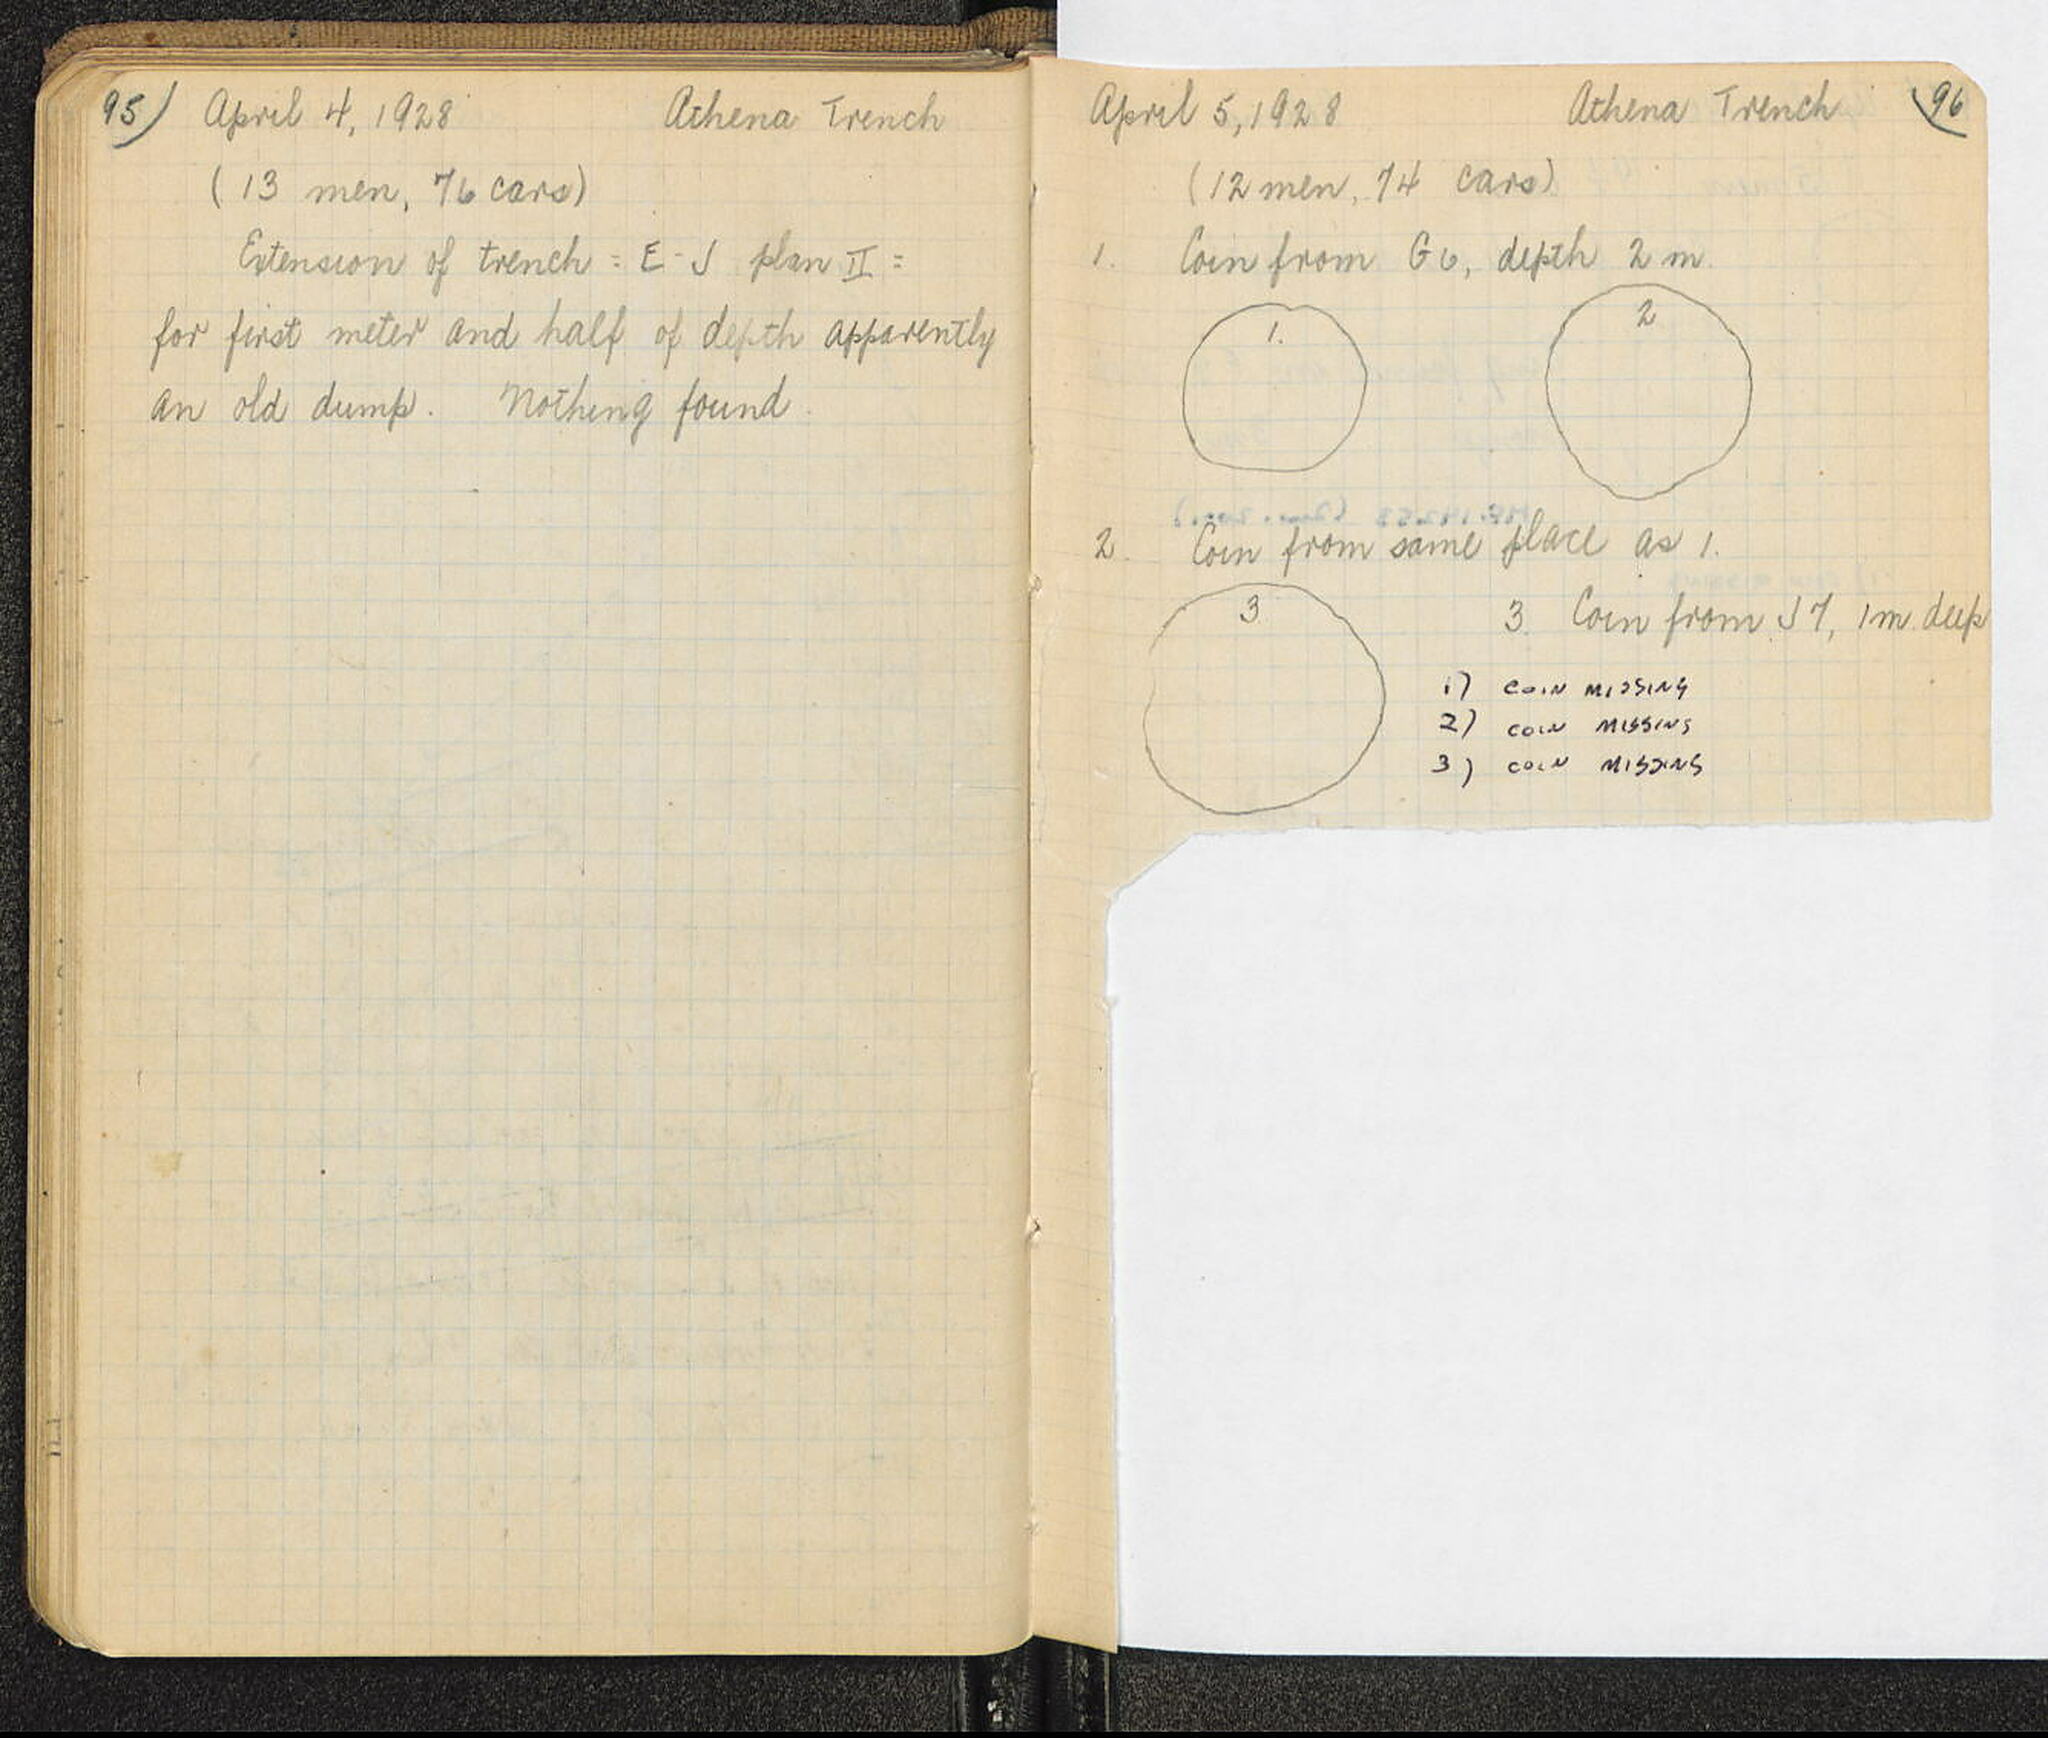 95) April 4, 1928 Athena Trench
(13 men, 76 cars)
Extension of trench = E-J plan II =
for first meter and half of depth apparently
an old dump. Nothing found.
April 5, 1928 Athena Trench (96
(12 men, 74 cars)
1. Coin from G6, depth 2 m.
1. 2
2. Coin from same place as 1.
3
3. Coin from J7, 1 m. deep
1) COIN MISSING
2) COIN MISSING
3) COIN MISSING